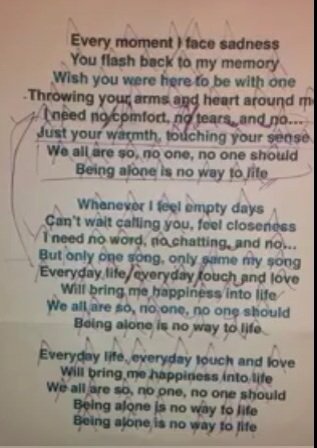 Every moment I face sadness
You flash back to my memory
Wish you were here to be with one
Throwing your arms and heart around me
I need no comfort, no tears, and no...
Just your warmth, touching your sense
We all are so, no one, no one should
Being alone is no way to life
Whenever I feel empty days
Can't wait calling you, feel closeness
I need no word, no chatting, and no...
But only one song, only same my song
Everyday life, everyday touch and love
Will bring me happiness into life
We all are so, no one, no one should
Being alone is no way to life
Everyday life, everyday touch and love
Will bring me happiness into life
We all are so, no one, no one should
Being alone is no way to life
Being alone is no way to life